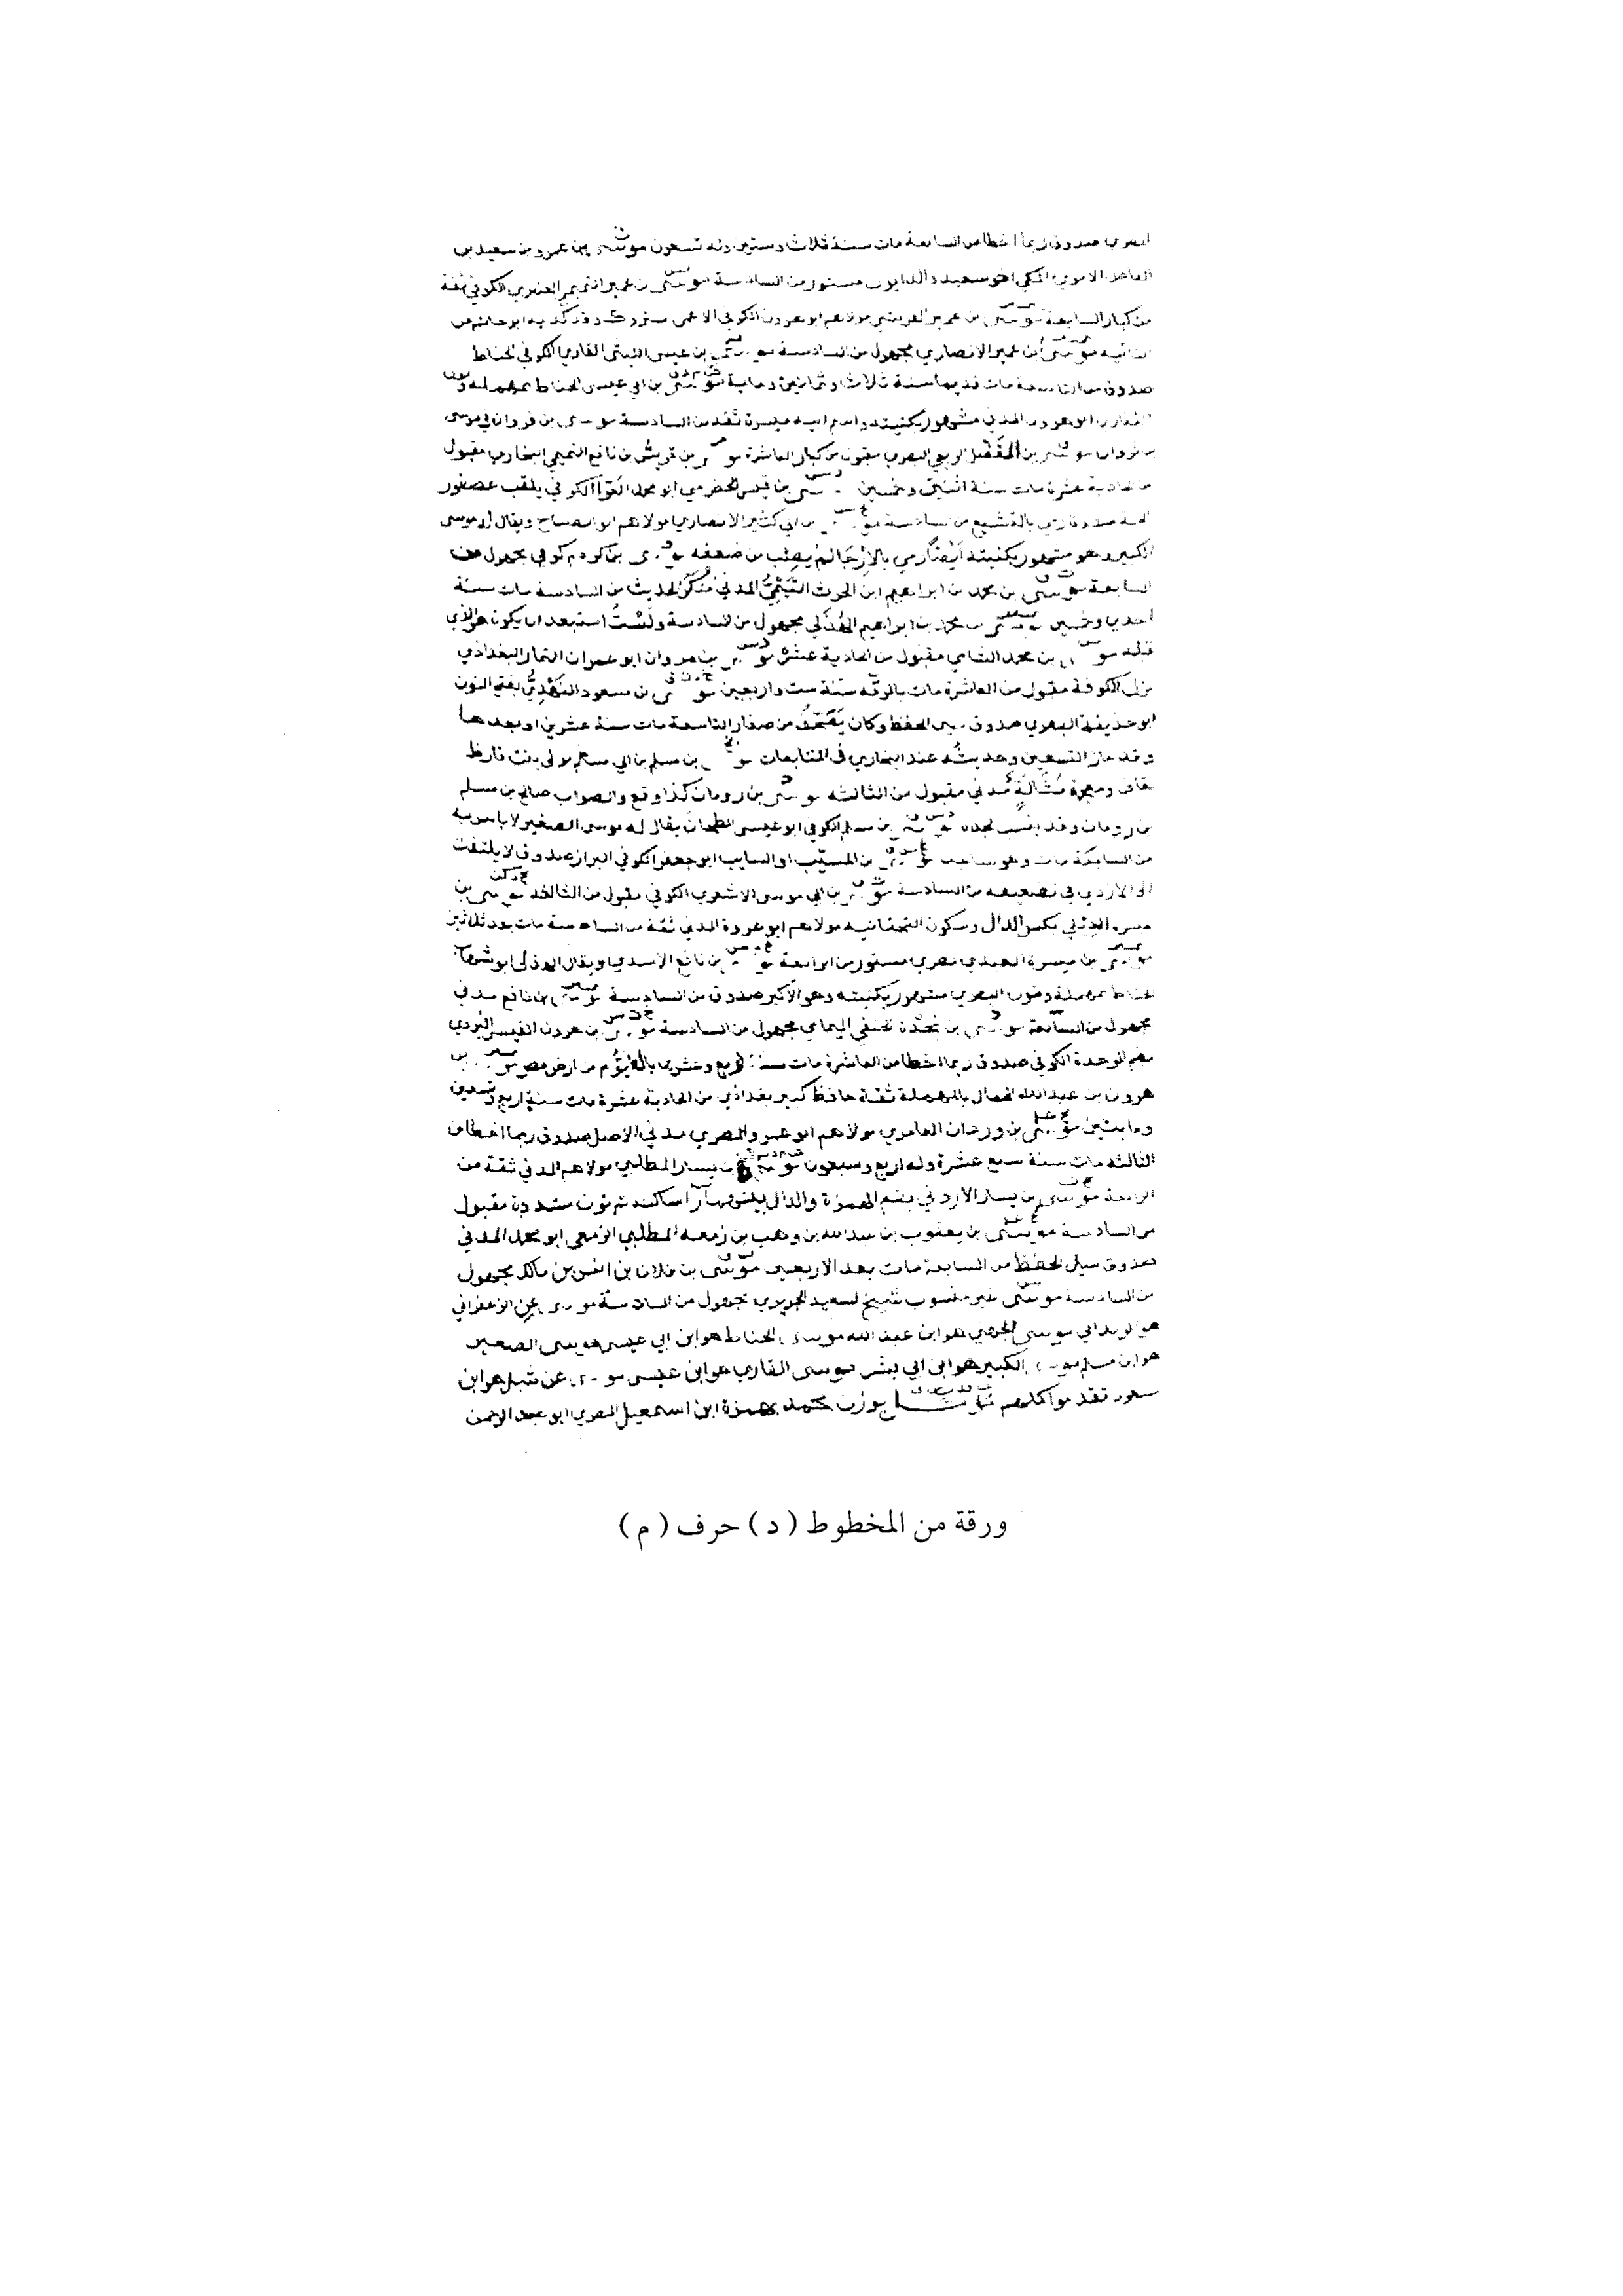 البصري صدوق ربما اخطا من السابعة مات سنة ثلاث وستين وله تسعون موسى بن عمرو بن سعيد بن
العاص الاموي المكي اخو سعيد والد ايوب مستور من السادسة موسى بن عمير التميمي العنبري الكوفي ثقة
من كبار السابعة موسى بن عمير القرشي مولاهم ابو هرون الكوفي الاعمى متروك وقد كذبه ابو حاتم من
الثامنة موسى بن عمير الانصاري مجهول من السادسة موسى بن عيسى الليثي القاري الكوفي الخياط
صدوق من التاسعة مات قديما سنة ثلاث وثمانين وماية موسى بن ابي عيسى الحناط بمهملة ونون
الغفاري ابو هرون المدني مشهور بكنيته واسم ابيه ميسرة ثقة من السادسة موسى بن فروان في موسى
بن ثروان موسى بن الفضل الربعي البصري مقبول من كبار العاشرة موسى بن قريش بن نافع التميمي البخاري مقبول
من الحادية عشرة مات سنة اثنتين وخمسين موسى بن قيس الحضرمي ابو محمد الفرا الكوفي يلقب عصفور
الجنة صدوق رمي بالتشيع من السادسة موسى بن ابي كثير الانصاري مولاهم ابو الصباح ويقال له موسى
الكبير وهو مشهور بكنيته ايضا رمي بالارجا لم يصب من ضعفه موسى بن كردم كوفي مجهول من
السابعة موسى بن محمد بن ابراهيم ابن الحرث التيمي المدني منكر الحديث من السادسة مات سنة
احدي وخمسين موسى بن محمد بن ابراهيم الهذلي مجهول من السادسة ولست استبعد ان يكون هو الذي
قبله موسى بن محمد الشامي مقبول من الحادية عشرة موسى بن مروان ابو عمران التمار البغدادي
نزل الكوفة مقبول من العاشرة مات بالرقة سنة ست واربعين موسى بن مسعود النهدي بفتح النون
ابو حذيفة البصري صدوق سيى الحفظ وكان يصحف من صغار التاسعة مات سنة عشرين او بعدها
وقد جاز التسعين وحديثه عند البخاري في المتابعات موسى بن مسلم بن ابي مسلم مولى بنت قارظ
بقاف ومعجمة مشالة مدني مقبول من الثالثة موسى بن رومان كذا وقع والصواب صالح بن مسلم
بن رومان وقد ينسب لجده موسى بن مسلم الكوفي ابو عيسى الطحان يقال له موسى الصغير لا باس به
من السابعة مات وهو ساجد موسى بن المسيب او السايب ابو جعفر الكوفي البزاز صدوق لا يلتفت
الى الازدي في تضعيفه من السادسة موسى بن ابي موسى الاشعري الكوفي مقبول من الثالثة موسى بن
ميسرة الديلي بكسر الدال وسكون التحتانية مولاهم ابو عروة المدني ثقة من السادسة مات بعد ثلاثين
موسى بن ميسرة العبدي بصري مستور من الرابعة موسى بن نافع الاسدي ويقال الهذلي ابو شهاب
الحناط بمهملة ونون البصري مشهور بكنيته وهو الاكبر صدوق من السادسة موسى بن نافع مدني
مجهول من السابعة موسى بن نجدة الحنفي اليمامي مجهول من السادسة موسى بن هرون القيسي البردي
بضم الموحدة الكوفي صدوق ربما اخطا من العاشرة مات سنة اربع وعشرين بالفيوم من ارض مصر موسى بن
هرون بن عبد الله الحمال بالمهملة ثقة حافظ كبير بغدادي من الحادية عشرة مات سنة اربع وتسعين
ومايتين موسى بن وردان العامري مولاهم ابو عمرو المصري مدني الاصل صدوق ربما اخطا من
الثالثة مات سنة سبع عشرة وله اربع وسبعون موسى بن يسار المطلبي مولاهم المدني ثقة من
الرابعة موسى بن يسار الاردني بضم الهمزة والدال بينهما را ساكنة ثم نون مشددة مقبول
من السادسة موسى بن يعقوب بن عبد الله بن وهب بن زمعة المطلبي الزمعي ابو محمد المدني
صدوق سيى الحفظ من السابعة مات بعد الاربعين موسى بن فلان بن انس بن مالك مجهول
من السادسة موسى غير منسوب شيخ لسعيد الجريري مجهول من السادسة موسى عن الزعفراني
هو موسى الجهني هو ابن عبد الله موسى الحناط هو ابن ابي عيسى موسى الصغير
هو ابن مسلم موسى الكبير هو ابن ابي موسى القاري هو ابن عيسى موسى عن شبل هو ابن
مسعود بوزن محمد بهمزة ابن اسمعيل البصري ابو عبد الرحمن
ورقة من المخطوط ( د ) حرف ( م )